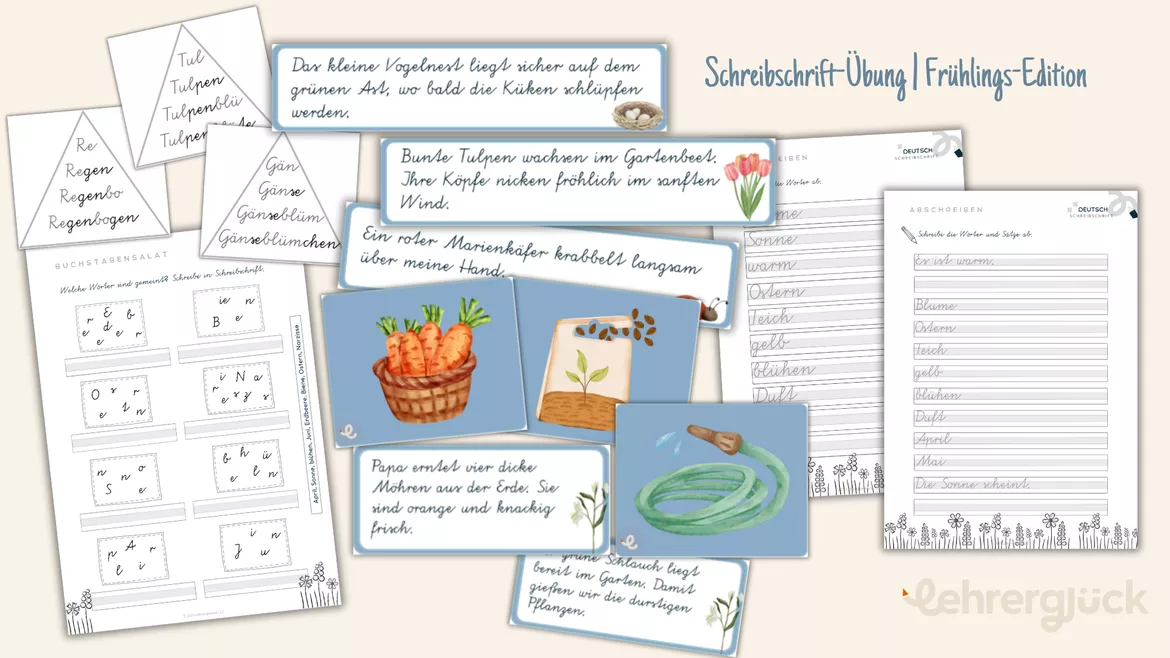 Schreibschrift-Übung | Frühlings-Edition
Tul
Tulpen
Tulpenblü
Re
Regen
Regenbo
Regenbogen
Gän
Gänse
Gänseblüm
Gänseblümchen
Das kleine Vogelnest liegt sicher auf dem
grünen Ast, wo bald die Küken schlüpfen
werden.
Bunte Tulpen wachsen im Gartenbeet.
Ihre Köpfe nicken fröhlich im sanften
Wind.
Ein roter Marienkäfer krabbelt langsam
über meine Hand.
Papa erntet vier dicke
Möhren aus der Erde. Sie
sind orange und knackig
frisch.
grüne Schlauch liegt
bereit im Garten. Damit
gießen wir die durstigen
Pflanzen.
BUCHSTABENSALAT
Welche Wörter sind gemeint? Schreibe in Schreibschrift.
r E b
e d
e e r
ie n
B e
O s r
e t n
i N a
r e s z s
n o
S n e
b h ü
e l n
p A r
l i
i n
J u
April, Sonne, blühen, Juni, Erdbeere, Biene, Ostern, Narzisse
DEUTSCH
SCHREIBSCHRIFT
die Wörter ab.
Sonne
warm
Ostern
gelb
blühen
Duft
ABSCHREIBEN
DEUTSCH
SCHREIBSCHRIFT
Schreibe die Wörter und Sätze ab.
Es ist warm.
Blume
Ostern
Teich
gelb
blühen
Duft
April
Mai
Die Sonne scheint.
Lehrerglück